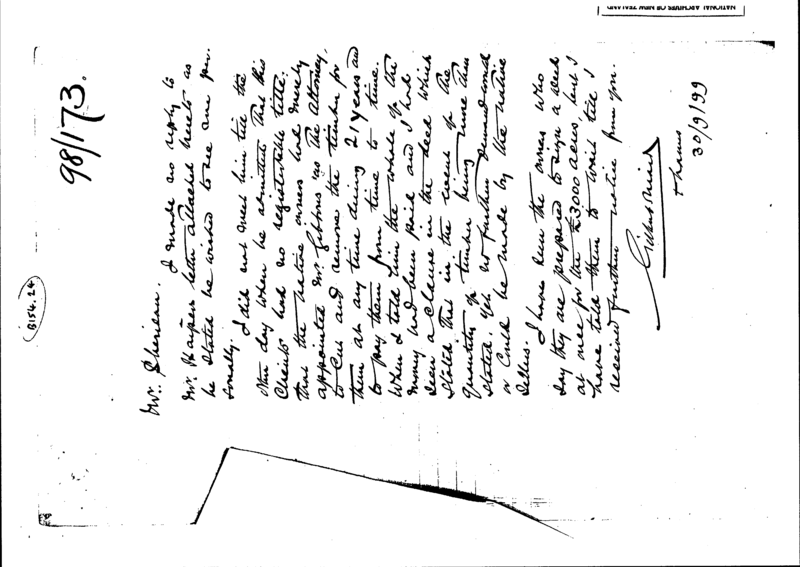 NATIONAL ARCHIVES OF NEW ZEALAND
98/173.
B154.24
Mr. Sheridan.
I made no reply to
Mr. Harper's letter attached hereto as
he stated he wished to see me per-
sonally.
I did not meet him till the
other day when he admitted that his
Clients had no registerable title.
that the native owners had merely
appointed Mr. Gibbons as the Attorney,
to Cut and remove the timber for
them at any time during 21 years and
to pay them from time to time.
When I told him the whole of the
money had been paid and I had
seen a clause in the deed which
stated that in the event of the
quantity of timber being more than
stated. Yet no further demand could
or Could be made by the native
sellers.
I have seen the owners who
say they are prepared to sign a deed
at once for the 3000 acres, but I
have told them to wait till I
received further notice from you.
Thames
30/9/99